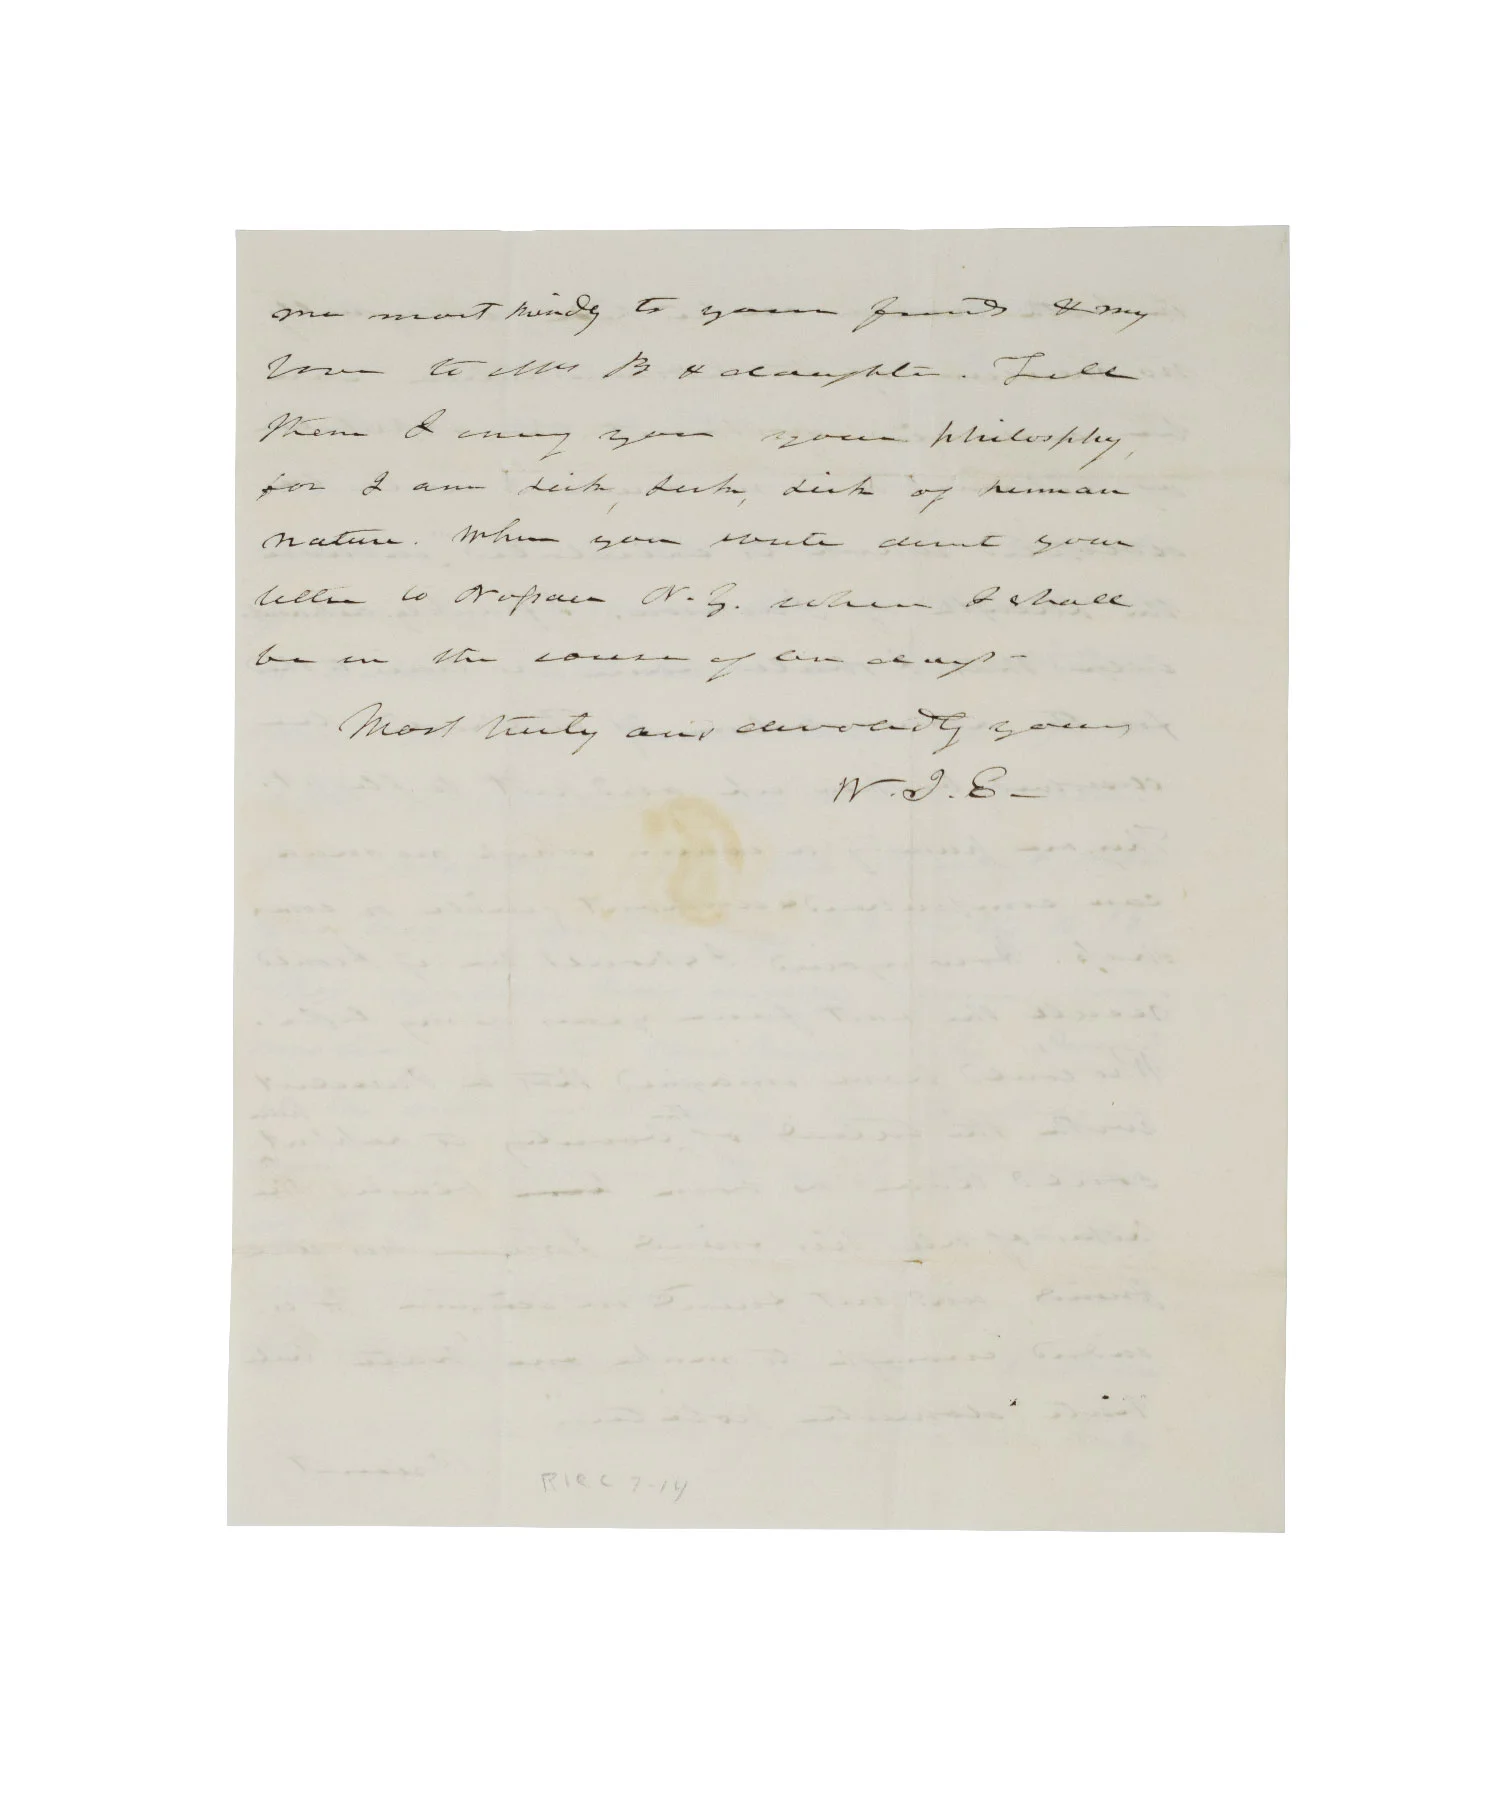 me most kindly to your friends & my
love to Mrs B & daughter. Tell
them I envy you your philosphy,
for I am sick, sick, sick of human
nature. When you write direct your
letter to N.Y. when I shall
be in the course of days -
Most truly and devotedly yours
W. J. E -
R1RC 7-14